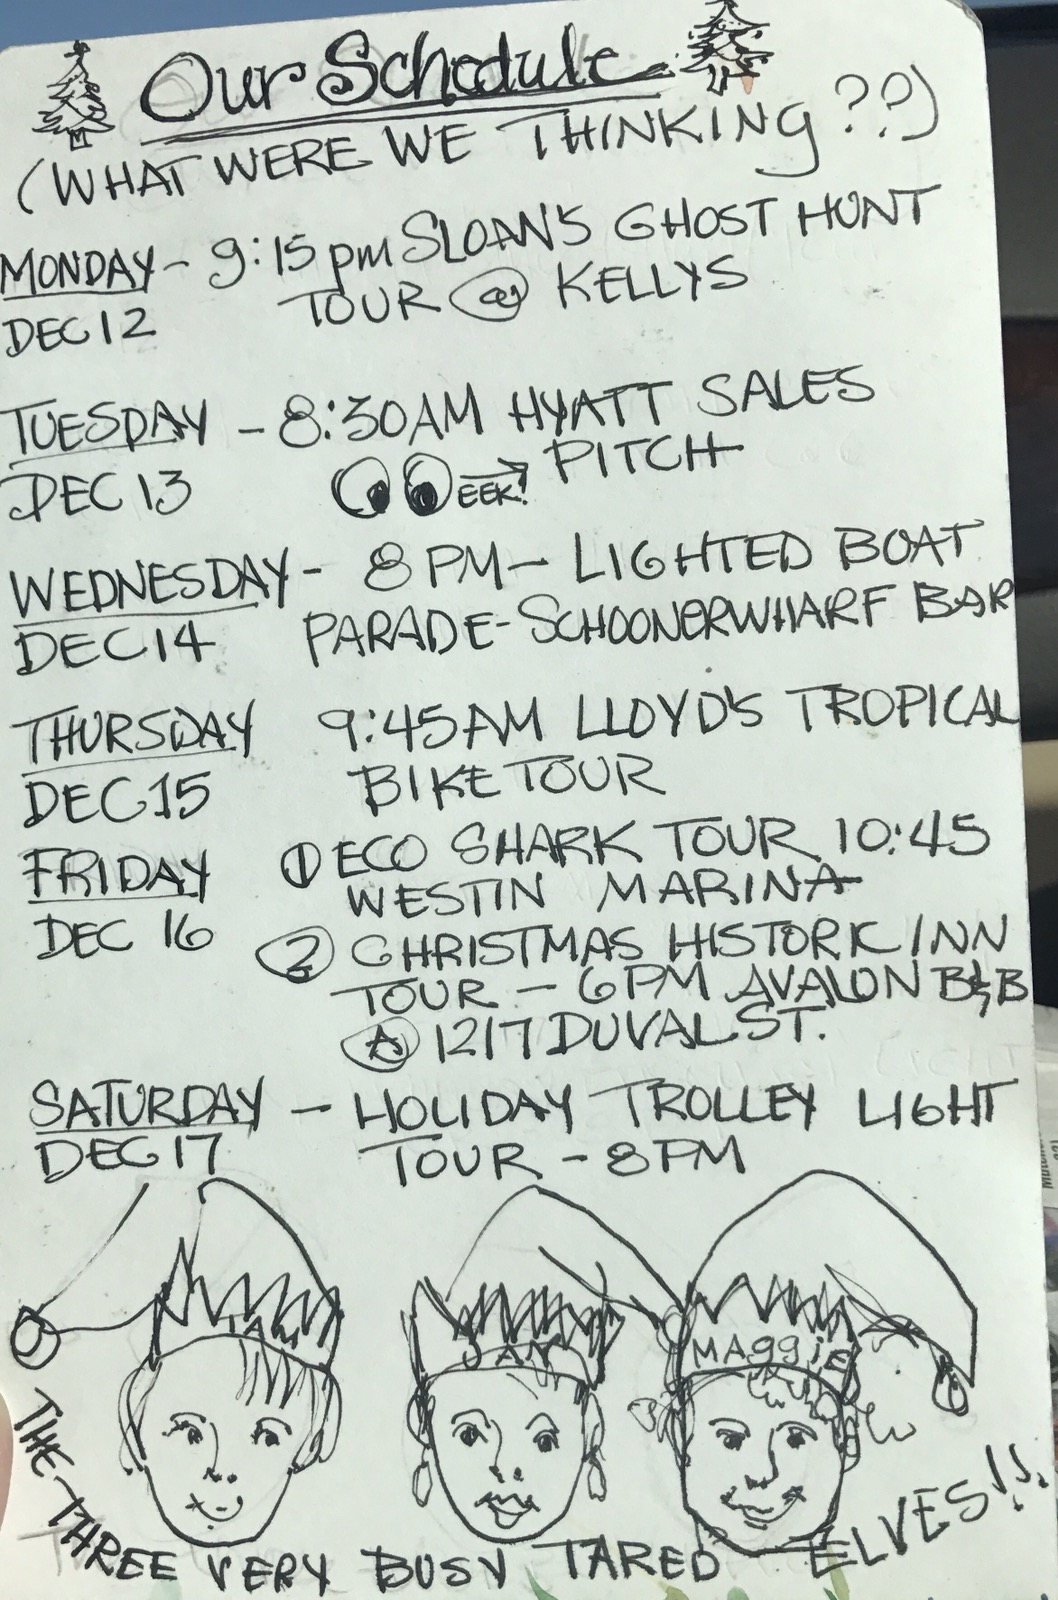 Our Schedule
(WHAT WERE WE THINKINg ??)
MONDAY - 9:15 pm SLOAN'S GHOST HUNT
DEC 12 TOUR @ KELLYS
TUESDAY - 8:30AM HYATT SALES
DEC 13 EEK! PITCH
WEDNESDAY - 8 PM - LIGHTED BOAT
DEC 14 PARADE - SCHOONERWHARF BAR
THURSDAY 9:45AM LLOYD'S TROPICAL
DEC 15 BIKE TOUR
FRIDAY ① ECO SHARK TOUR 10:45
WESTIN MARINA
DEC 16 ② CHRISTMAS HISTORIC INN
TOUR - 6PM AVALON B&B
@ 1217 DUVAL ST.
SATURDAY - HOLIDAY TROLLEY LIGHT
DEC 17 TOUR - 8PM
JAN
MAggiE
THE THREE VERY BUSY TARED ELVES!!